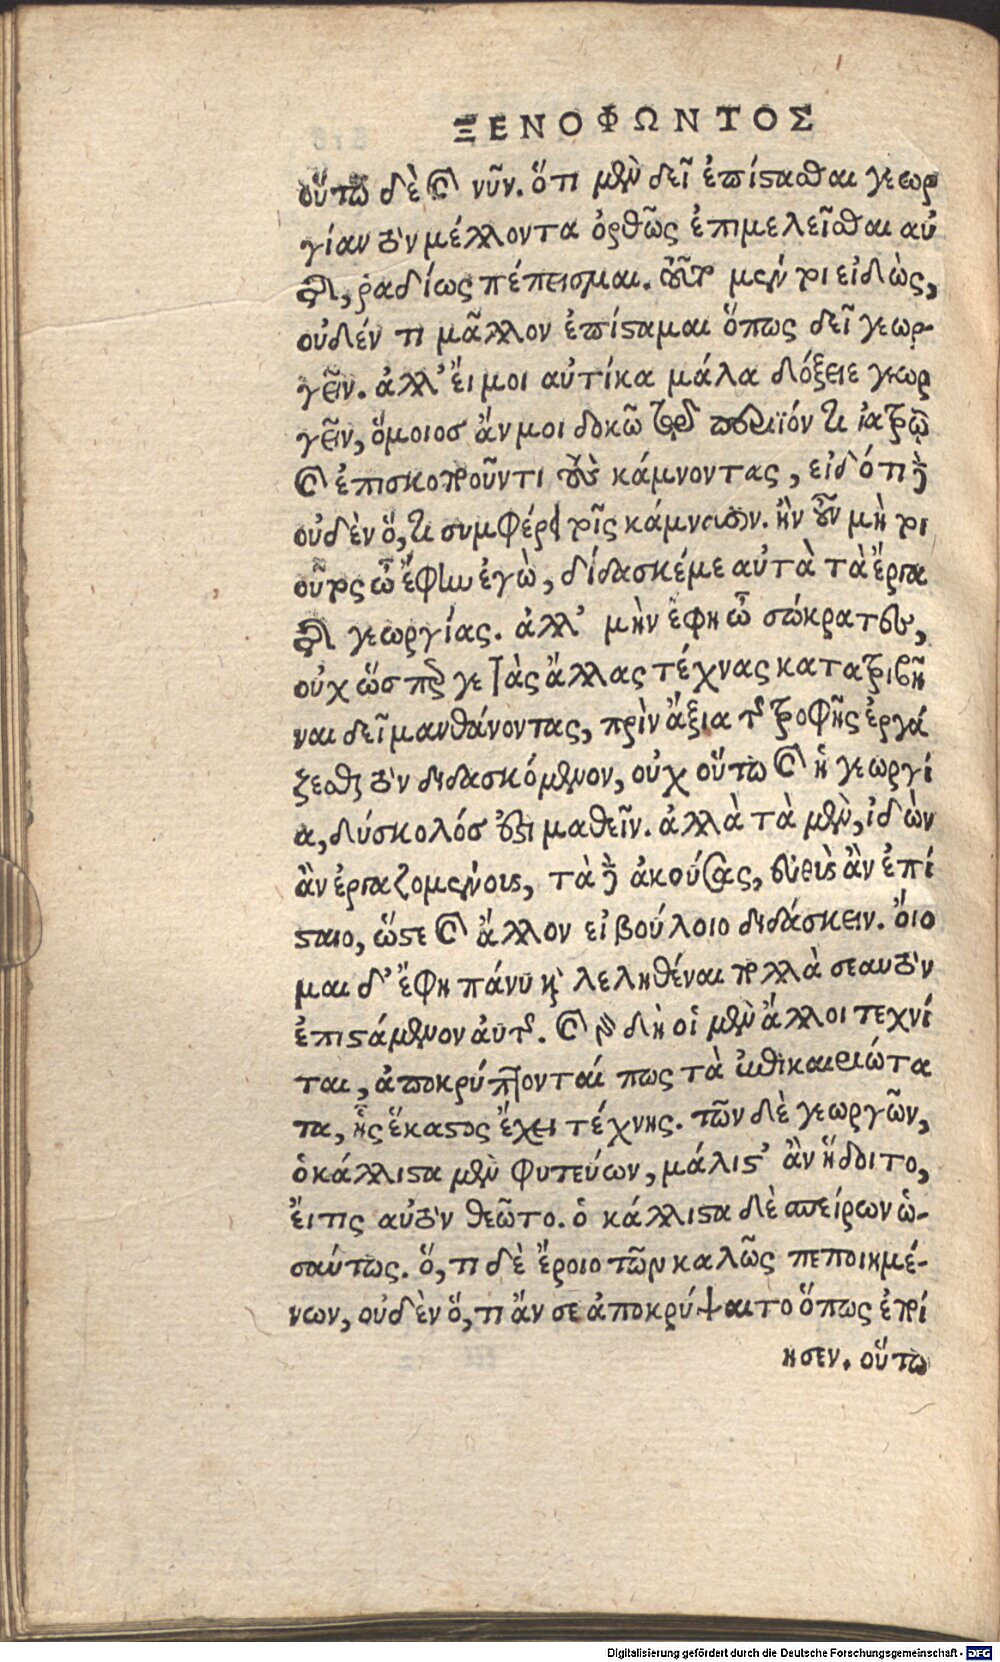 ΞΕΝΟΦΩΝΤΟΣ
οὕτω δὲ καὶ νῦν. ὅτι μὲν δεῖ ἐπίστασθαι γεωρ
γίαν τὸν μέλλοντα ὀρθῶς ἐπιμελεῖσθαι αὐ
τῆς, ῥαδίως πέπεισμαι. τοῦτο μέντοι εἰδὼς,
οὐδέν τι μᾶλλον ἐπίσταμαι ὅπως δεῖ γεωρ-
γεῖν. ἀλλ' ἔι μοι αὐτίκα μάλα δόξειε γεωρ
γεῖν, ὅμοιοσ ἄν μοι δοκῶ εἶναι τῷ περιϊόντι ἰατρῷ
καὶ ἐπισκοποῦντι τοὺς κάμνοντας, εἰδότι δὲ
οὐδὲν ὅ,τι συμφέρει τοῖς κάμνουσιν. ἢν οὖν μὴ τοι
οῦτος ὦ ἔφην ἐγὼ, δίδασκέμε αὐτὰ τὰ ἔργα
τῆς γεωργίας. ἀλλ' μὴν ἔφη ὦ σώκρατες,
οὐχ ὥσπερ γε τὰς ἄλλας τέχνας κατατριβῆ
ναι δεῖ μανθάνοντας, πρὶν ἄξια τῆς τροφῆς ἐργά
ζεσθαι τὸν διδασκόμενον, οὐχ οὕτω καὶ ἡ γεωργί
α, δύσκολόσ ἐστι μαθεῖν. ἀλλὰ τὰ μὲν, ἰδὼν
ἂν ἐργαζομένους, τὰ δὲ ἀκούσας, εὐθὺς ἂν ἐπί
σταιο, ὥστε καὶ ἄλλον εἰ βούλοιο διδάσκειν. ὄιο
μαι δ' ἔφη πάνυ καὶ λεληθέναι πολλὰ σεαυτὸν
ἐπιστάμενον ἀυτῆς. καὶ γὰρ δὴ οἱ μὲν ἄλλοι τεχνί
ται, ἀποκρύπτονταί πως τὰ ἐπικαιριώτα
τα, ἧς ἕκαστος ἔχει τέχνης. τῶν δὲ γεωργῶν,
ὁ κάλλιστα μὲν φυτεύων, μάλιστ' ἂν ἥδοιτο,
ἔιτις αὐτὸν θεῶτο. ὁ κάλλιστα δὲ σπείρων ὡ-
σαύτως. ὅ,τι δὲ ἔροιο τῶν καλῶς πεποιημέ-
νων, οὐδὲν ὅ,τι ἄν σε ἀποκρύψαιτο ὅπως ἐποί
ησεν. οὕτω
Digitalisierung gefördert durch die Deutsche Forschungsgemeinschaft - DFG